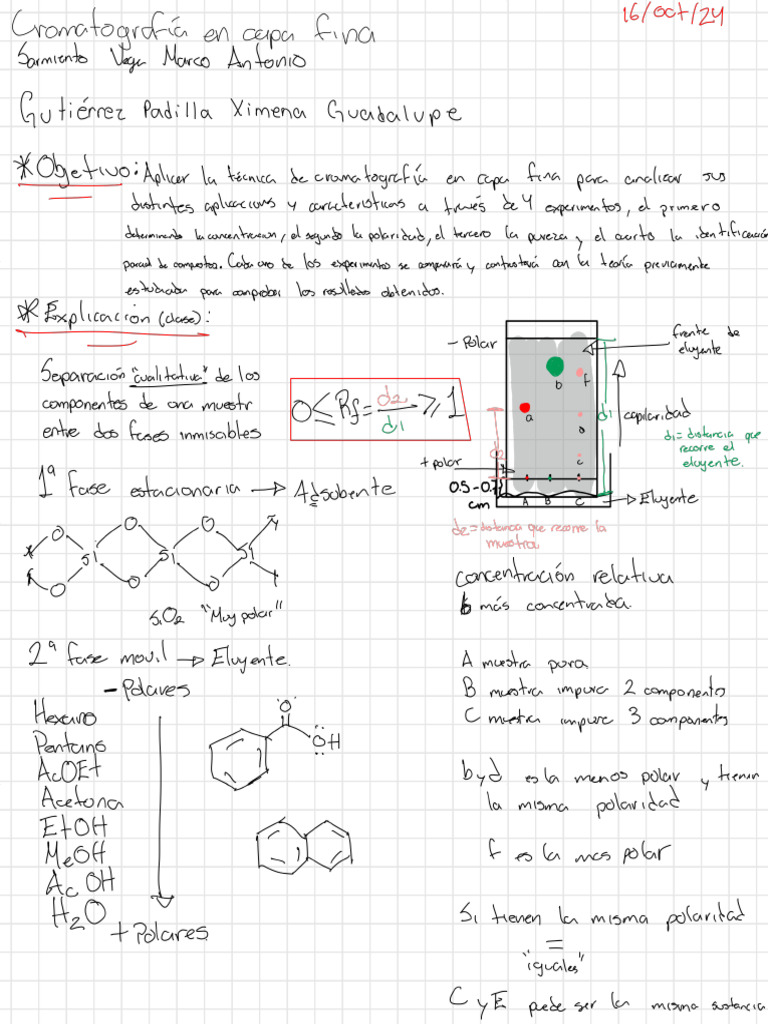 Cromatografía en capa fina
16/oct/24
Sarmiento Vega Marco Antonio
Gutiérrez Padilla Ximena Guadalupe
*Objetivo: Aplicar la técnica de cromatografía en capa fina para analizar sus
distintas aplicaciones y características a través de 4 experimentos, el primero
determinando la concentración, el segundo la polaridad, el tercero la pureza y el cuarto la identificación
parcial de compuestos. Cada uno de los experimentos se comparará y contrastará con la teoría previamente
estudiada para comprobar los resultados obtenidos.
* Explicación (clase):
Separación "cualitativa" de los
componentes de una muestr
entre dos fases inmiscibles
0 ≤ Rf = d2/d1 ≥ 1
- Polar
frente de
eluyente
b
f
a
d1
capilaridad
d2
d1 = distancia que
recorre el
eluyente.
+ polar
c
0.5-0.7
cm
A B C
Eluyente
d2 = distancia que recorre la
muestra
1ª fase estacionaria → Adsobente
O O O
Si Si Si
O O O
SiO2 "Muy polar"
concentración relativa
b más concentrada
2ª fase movil → Eluyente.
- Polares
Hexano
Pentano
AcOEt
Acetona
EtOH
MeOH
AcOH
H2O
+ Polares
O
OH
A muestra pura
B muestra impura 2 componentes
C muestra impura 3 componentes
b y d es la menos polar y tienen
la misma polaridad
f es la mas polar
Si tienen la misma polaridad
=
"iguales"
C y E puede ser la misma sustancia